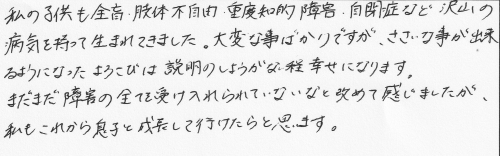 私の子供も全盲・肢体不自由・重度知的障害・自閉症など沢山の
病気を持って生まれてきました。大変な事ばかりですが、ささいな事が出来
るようになったよろこびは説明のしようがない程幸せになります。
まだまだ障害の全てを受け入れられていないなと改めて感じましたが、
私もこれから息子と成長して行けたらと思います。